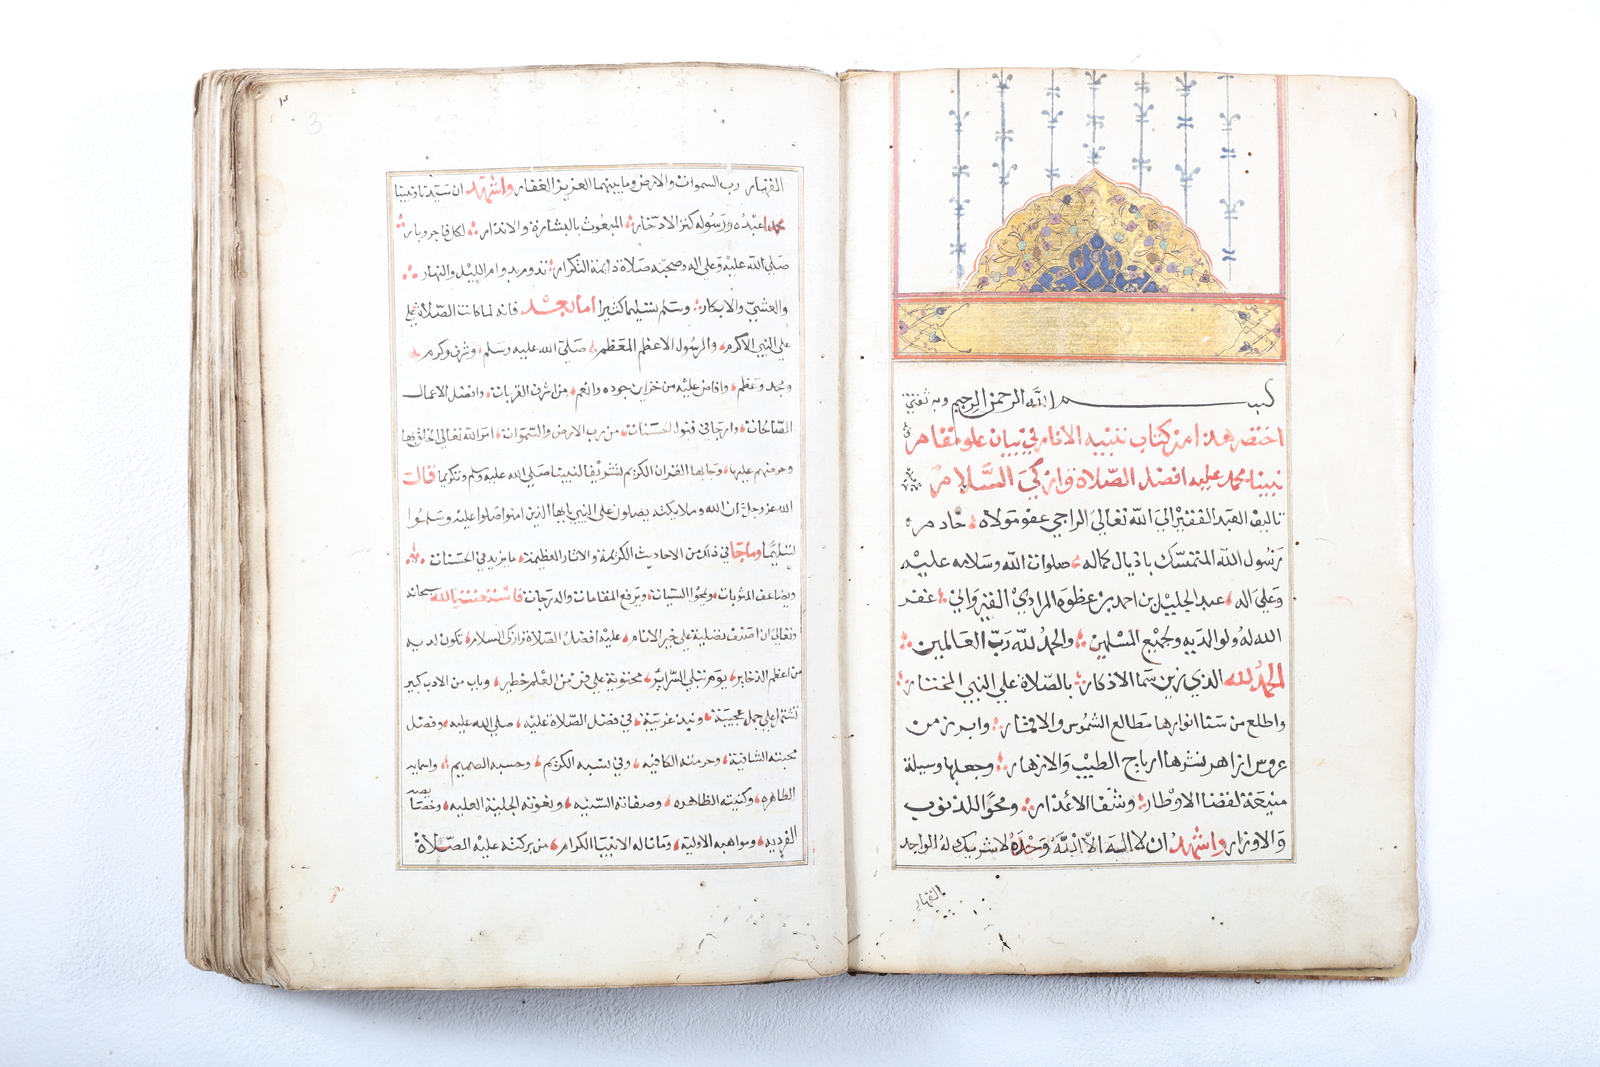 بسم الله الرحمن الرحيم وبه ثقتي
اختصر هذا من كتاب تنبيه الانام في بيان علو مقام
نبينا محمد عليه افضل الصلاة وازكي السلام
تاليف العبد الفقير الي الله تعالي الراجي عفو مولاه خادم
رسول الله المتمسك باذيال كماله صلوات الله وسلامه عليه
وعلي اله عبد الجليل بن احمد بن عظوم المرادي القيرواني غفر
الله له ولوالديه ولجميع المسلمين والحمد لله رب العالمين
الحمد لله الذي زين سما الاذكار بالصلاة علي النبي المختار
واطلع من سنا انوارها مطالع الشموس والاقمار وابرز من
عروس ازاهر نشرها ارياح الطيب والازهار وجعلها وسيلة
منيحة لقضا الاوطار وشفا الاعذار ومحوا للذنوب
والاوزار واشهد ان لا اله الا الله وحده لا شريك له الواحد
القهار
3
القهار رب السموات والارض وما بينهما العزيز الغفار واشهد ان سيدنا ونبينا
محمدا عبده ورسوله كنز الادخار المبعوث بالبشارة والانذار لكل فاجر وبار
صلي الله عليه وعلي اله وصحبه صلاة دايمة التكرار تدوم بدوام الليل والنهار
والعشي والابكار وسلم تسليما كثيرا اما بعد فانه لما كانت الصلاة علي
علي النبي الاكرم والرسول الاعظم المعظم صلي الله عليه وسلم وشرف وكرم
ومجد وعظم وافاض عليه من خزاين جوده وانعم من اشرف القربات وافضل الاعمال
الصالحات وارجا في قبول الحسنات من رب الارض والسموات امر الله تعالي الخلق بها
وحرضهم عليها وجا بها القران الكريم تشريفا لنبينا صلي الله عليه وسلم وتكريما قال
الله عز وجل ان الله وملايكته يصلون علي النبي يايها الذين امنوا صلوا عليه وسلموا
تسليما وما جا في ذلك من الاحاديث الكريمة والاثار العظيمة ما يزيد في الحسنات
ويضاعف المثوبات ويمحوا السيات ويرفع المقامات والدرجات فاستعنت بالله سبحانه
وتعالي ان اصنف فضيلة علي خير الانام عليه افضل الصلاة وازكي السلام تكون لديه
من اعظم الذخاير يوم تبلي السراير محتوية علي فن من العلم خطير وباب من الادب كبير
تشتمل علي جمل عجيبة ونبذ غريبة في فضل الصلاة عليه صلي الله عليه وفضل
محبته الشافية وحرمته الكافيه وفي نسبه الكريم وحسبه الصميم واسمايه
الطاهره وكنيته الظاهره وصفاته السنيه ونعوته الجلية العليه وخصايصه
الفرديه ومواهبه الاولية وما ناله الانبيا الكرام من بركته عليه الصلاة